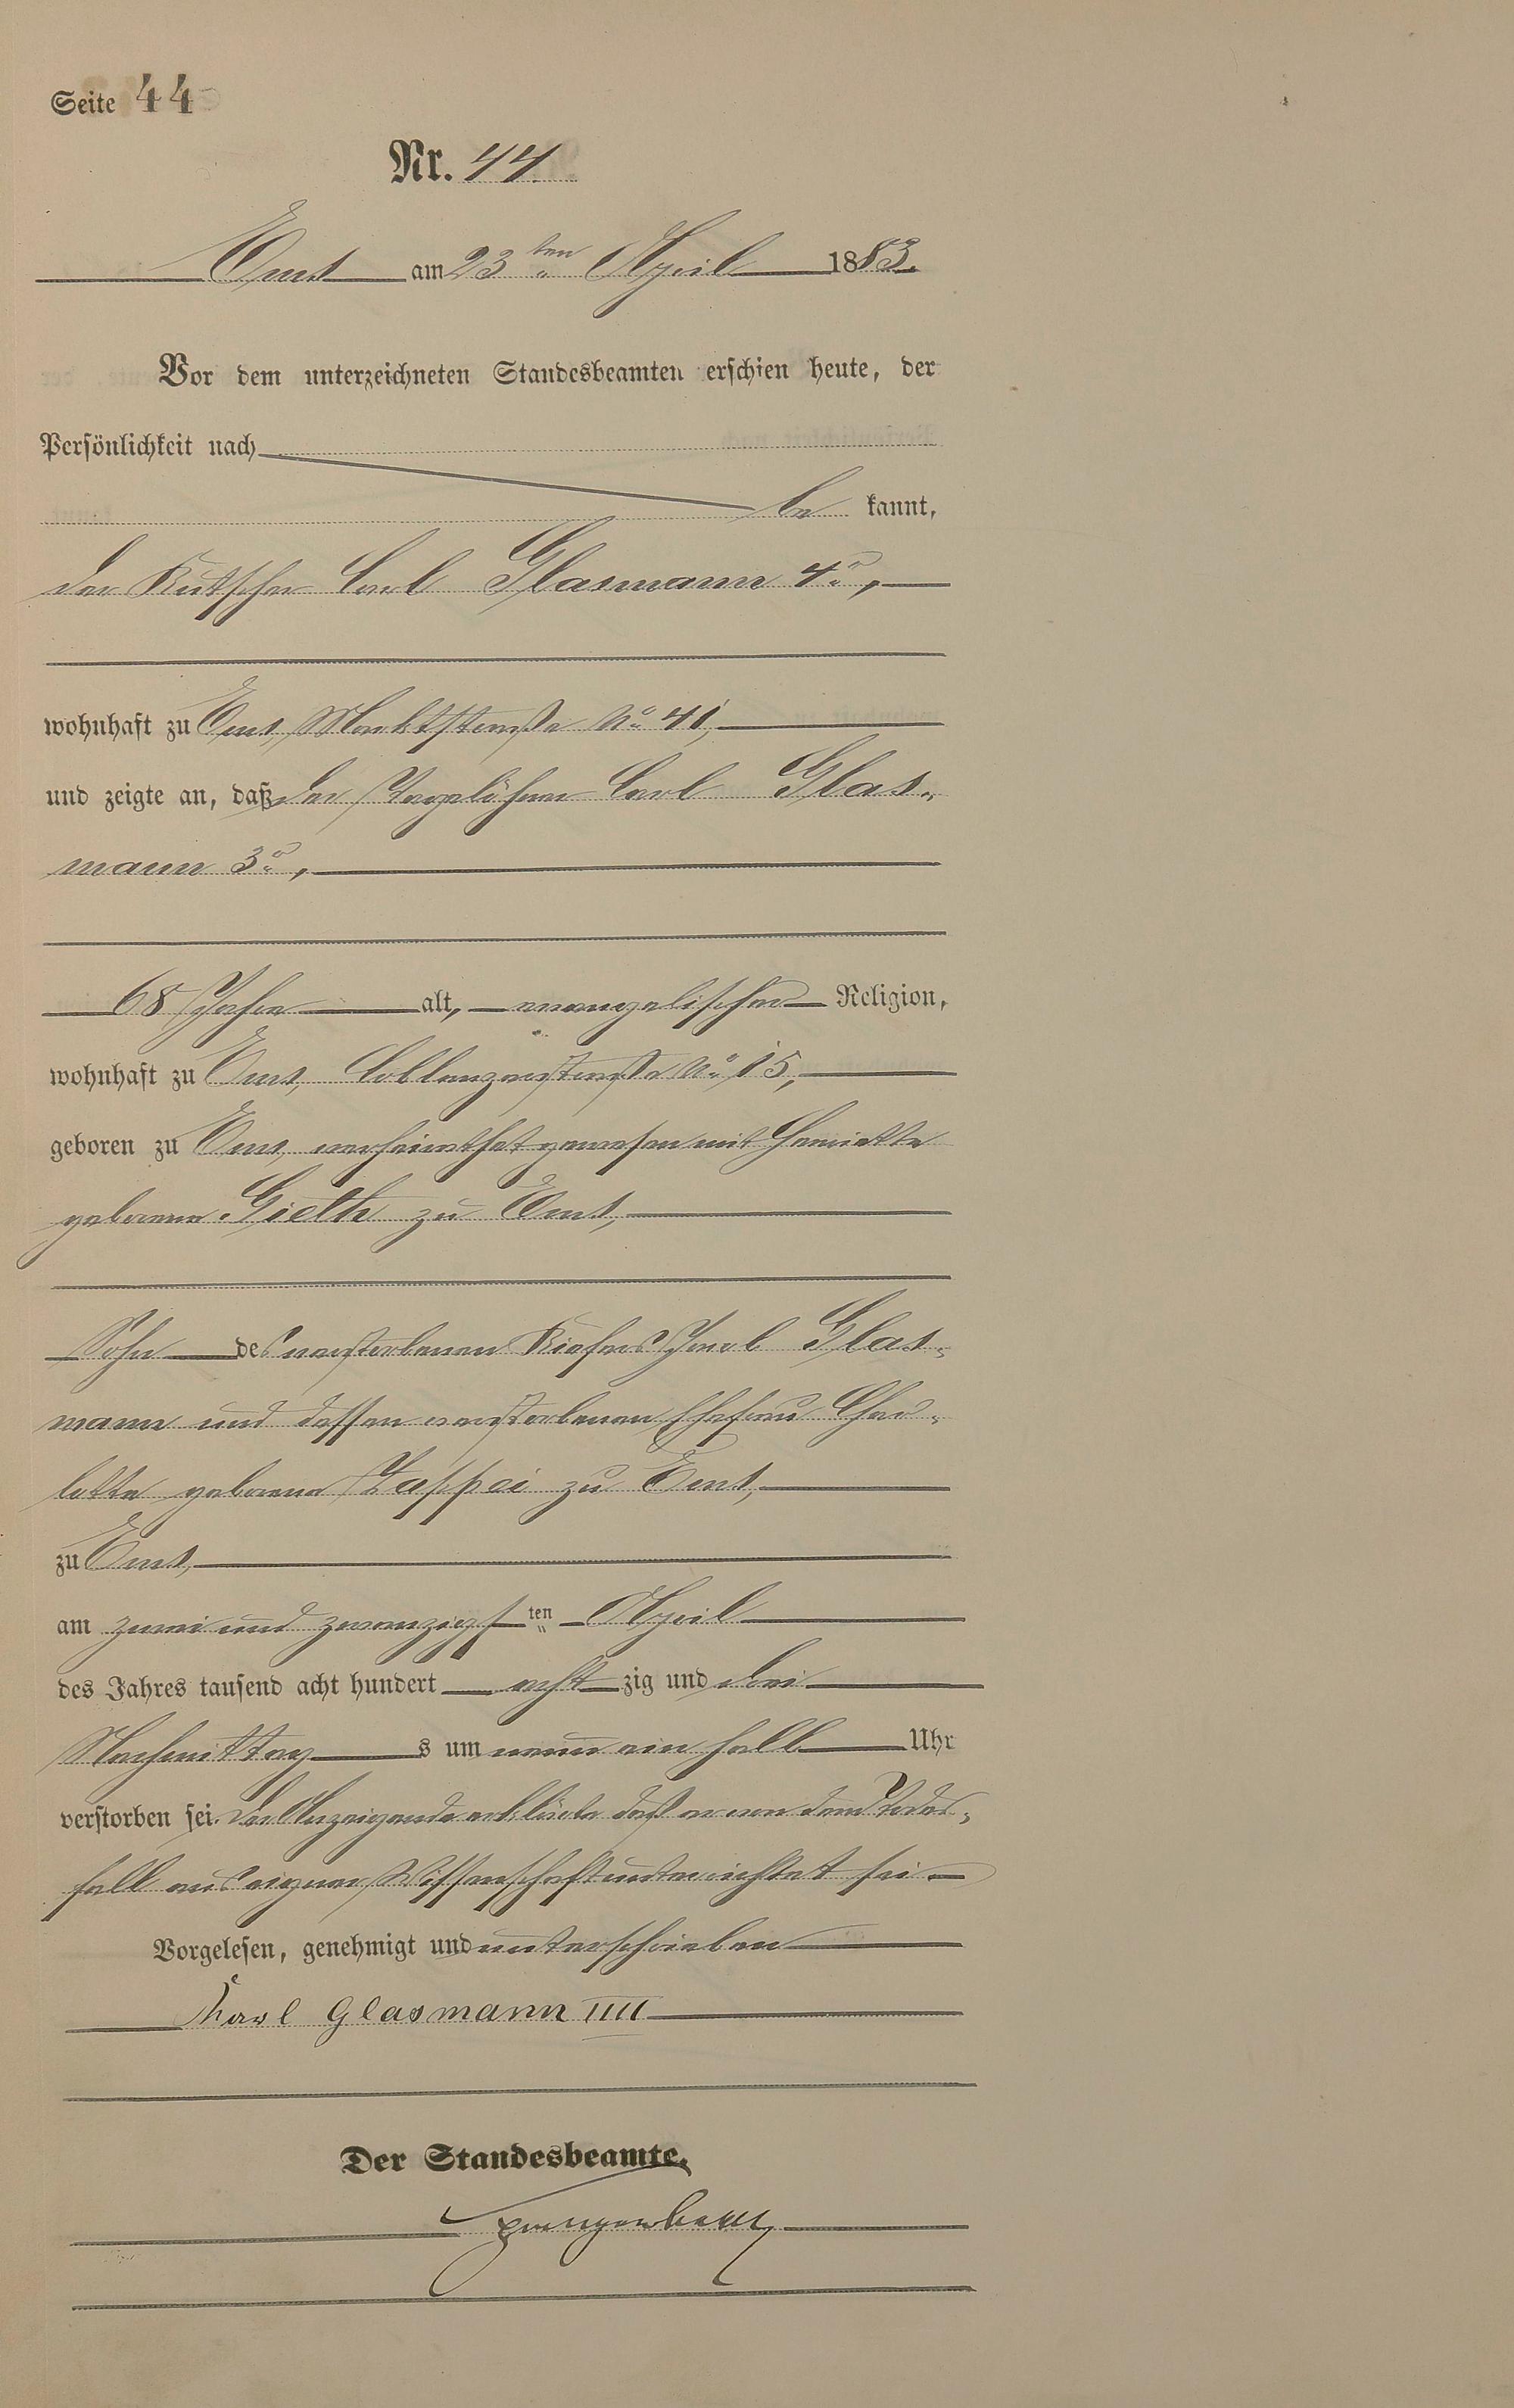 Seite 44
Nr. 44.
Ems am 23ten April 1883.
Vor dem unterzeichneten Standesbeamten erschien heute, der
Persönlichkeit nach
be kannt,
der Kutscher Carl Glasmann 4r,
wohnhaft zu Ems, Marktstraße No 41,
und zeigte an, daß der Tagelöhner Carl Glas-
mann 3r,
68 Jahre alt, evangelischer Religion,
wohnhaft zu Ems, Coblenzerstraße No 15,
geboren zu Ems, verheirathet gewesen mit Henriette
geborene Gieth zu Ems,
Sohn des verstorbenen Küfers Jacob Glas-
mann und dessen verstorbenen Ehefrau Char-
lotte geborene zu Ems,
zu Ems,
am zwei und zwanzigsten April
des Jahres tausend acht hundert acht zig und drei
Nachmittags um neun ein halb Uhr
verstorben sei. Der Anzeigende erklärte daß er von dem Todes-
fall aus eigner Wissenschaft unterrichtet sei
Vorgelesen, genehmigt und unterschrieben
Karl Glasmann IIII
Der Standesbeamte.